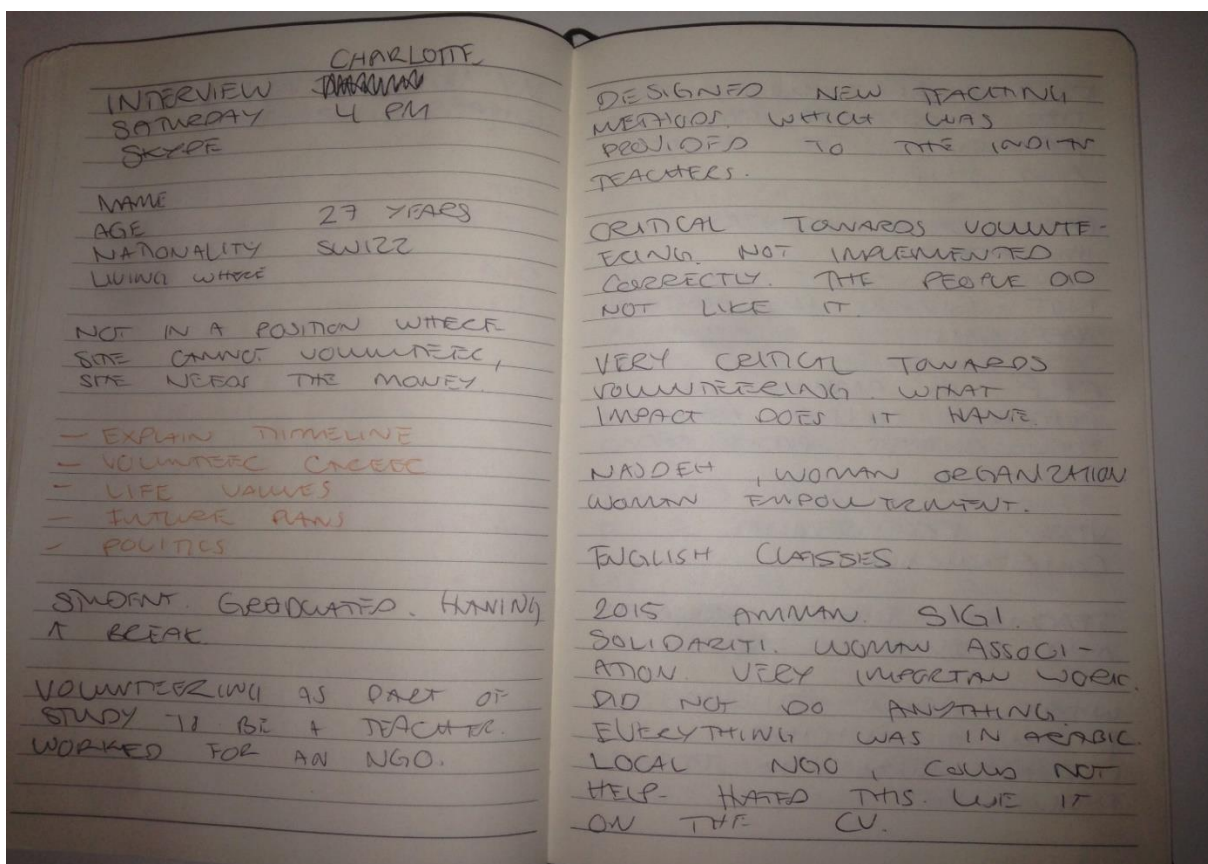 CHARLOTTE
INTERVIEW
SATURDAY 4 PM
SKYPE
NAME
AGE 27 YEARS
NATIONALITY SWIZZ
LIVING WHERE
NOT IN A POSITION WHERE
SHE CANNOT VOLUNTEER,
SHE NEEDS THE MONEY
- EXPLAIN TIMELINE
- VOLUNTEER CAREER
- LIFE VALUES
- FUTURE PLANS
- POLITICS
STUDENT. GRADUATED. HAVING
A BREAK
VOLUNTEERING AS PART OF
STUDY TO BE A TEACHER.
WORKED FOR AN NGO.
DESIGNED NEW TEACHING
METHODS. WHICH WAS
PROVIDED TO THE INDIAN
TEACHERS.
CRITICAL TOWARDS VOLUNTE-
ERING. NOT IMPLEMENTED
CORRECTLY. THE PEOPLE DID
NOT LIKE IT.
VERY CRITICAL TOWARDS
VOLUNTEERING. WHAT
IMPACT DOES IT HAVE.
NAJDEH, WOMAN ORGANIZATION
WOMAN EMPOWERMENT.
ENGLISH CLASSES.
2015 AMMAN. SIGI.
SOLIDARITI. WOMAN ASSOCI-
ATION. VERY IMPORTAN WORK.
DID NOT DO ANYTHING.
EVERYTHING WAS IN ARABIC.
LOCAL NGO, COULD NOT
HELP. HATED THIS. IT
ON THE CV.